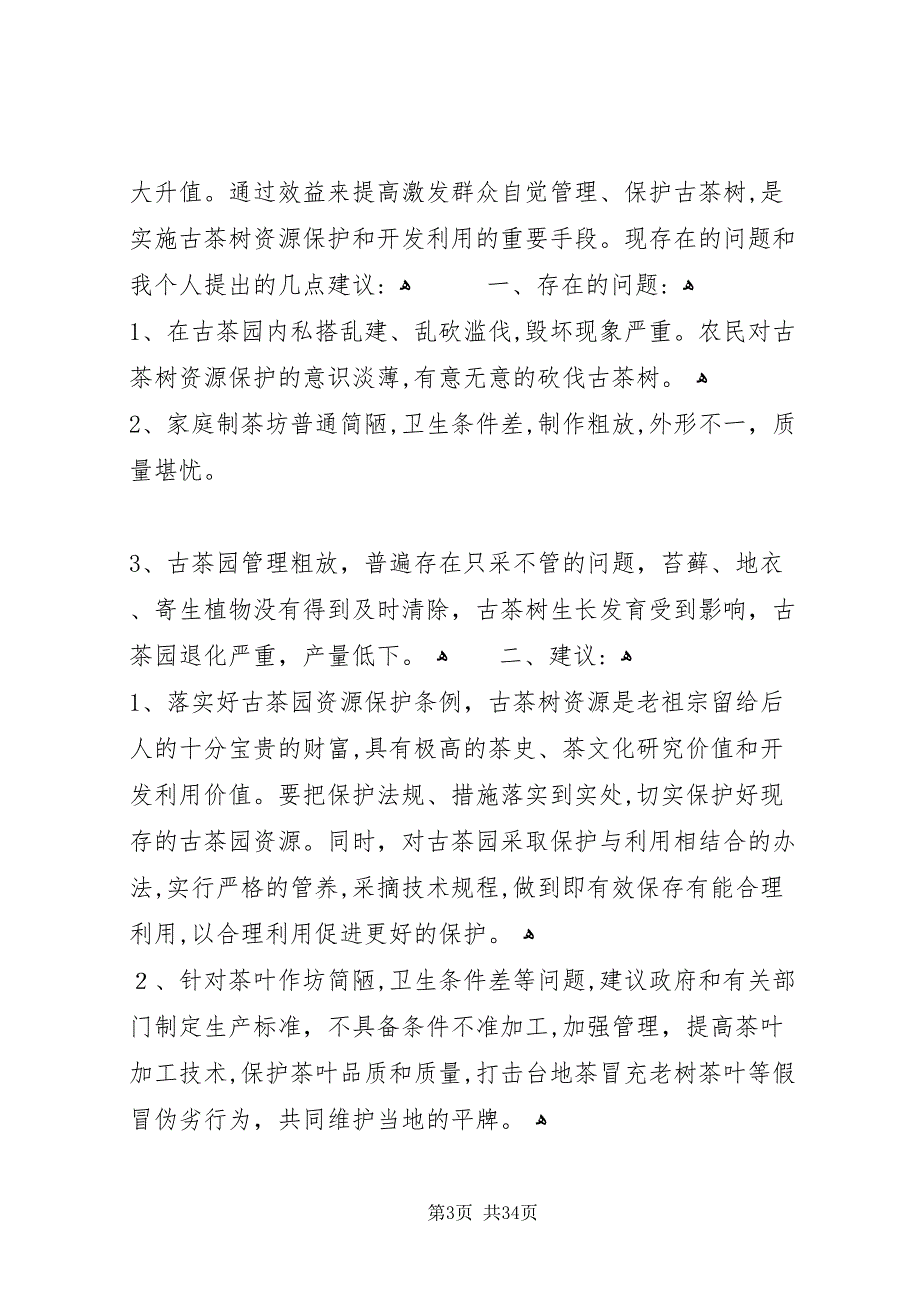 大升值。通过效益来提高激发群众自觉管理、保护古茶树,是
实施古茶树资源保护和开发利用的重要手段。现存在的问题和
我个人提出的几点建议: ﻫ 一、存在的问题: ﻫ
1、在古茶园内私搭乱建、乱砍滥伐,毁坏现象严重。农民对古
茶树资源保护的意识淡薄,有意无意的砍伐古茶树。 ﻫ
2、家庭制茶坊普通简陋,卫生条件差,制作粗放,外形不一，质
量堪忧。
3、古茶园管理粗放，普遍存在只采不管的问题，苔藓、地衣
、寄生植物没有得到及时清除，古茶树生长发育受到影响，古
茶园退化严重，产量低下。 ﻫ 二、建议: ﻫ
1、落实好古茶园资源保护条例，古茶树资源是老祖宗留给后
人的十分宝贵的财富,具有极高的茶史、茶文化研究价值和开
发利用价值。要把保护法规、措施落实到实处,切实保护好现
存的古茶园资源。同时，对古茶园采取保护与利用相结合的办
法,实行严格的管养,采摘技术规程,做到即有效保存有能合理
利用,以合理利用促进更好的保护。 ﻫ
２、针对茶叶作坊简陋,卫生条件差等问题,建议政府和有关部
门制定生产标准，不具备条件不准加工,加强管理，提高茶叶
加工技术,保护茶叶品质和质量,打击台地茶冒充老树茶叶等假
冒伪劣行为，共同维护当地的平牌。 ﻫ
第3页 共34页